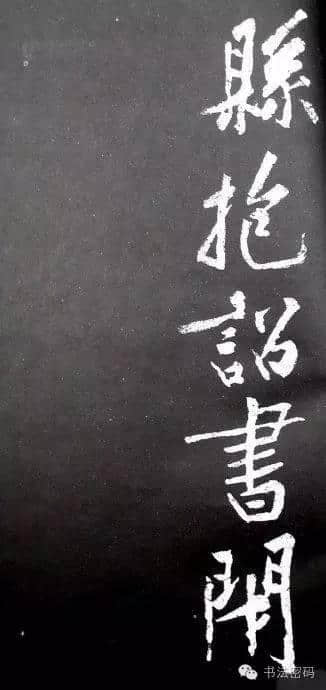 縣抱詔書
书法密码